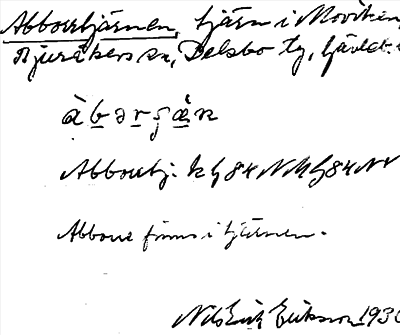 Abborrtjärnen, tjärn i Moviken,
Bjuråkers sn, Delsbo tg, Gävleb.
àbərʂä́n
Abborrtj. kg 84 NV
Abborre finns i tjärnen.
Nils Erik Eriksson 1930